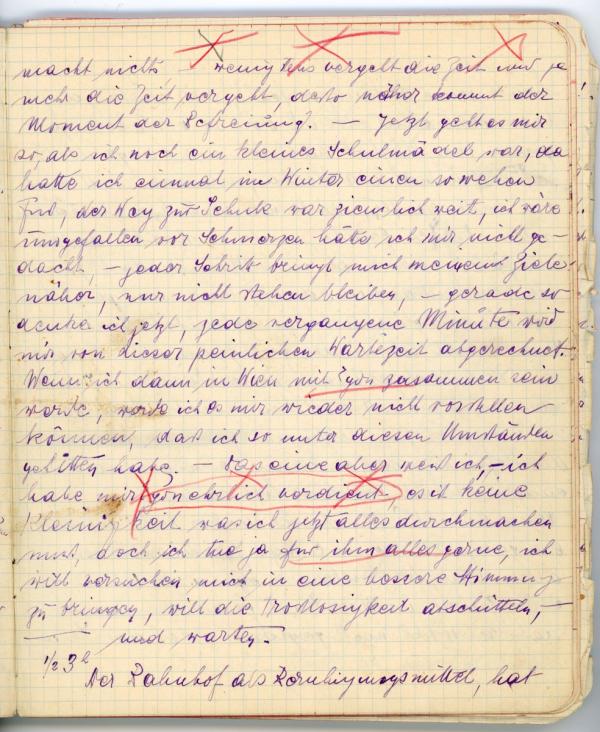 macht nichts, – wenigstens vergeht die Zeit und je
mehr die Zeit vergeht, desto näher kommt der
Moment der Befreiung. – Jetzt geht es mir
so, als ich noch ein kleines Schulmädel war, da
hatte ich einmal im Winter einen so wehen
Fuß, der Weg zur Schule war ziemlich weit, ich wäre
umgefallen vor Schmerzen hätte ich mir nicht ge-
dacht, – jeder Schritt bringt mich meinem Ziele
näher, nur nicht stehen bleiben, – gerade so
denke ich jetzt, jede vergangene Minute wird
mir von dieser peinlichen Wartezeit abgerechnet.
Wenn ich dann in Wien mit Egon zusammen sein
werde, werde ich es mir wieder nicht vorstellen
können, daß ich so unter diesen Umständen
gelitten habe. – Das eine aber weiß ich, – ich
habe mir Egon ehrlich verdient, es ist keine
Kleinigkeit was ich jetzt alles durchmachen
muß, doch ich tue ja für ihm alles gerne, ich
will versuchen mich in eine bessere Stimmung
zu bringen, will die Trostlosigkeit abschütteln, –
und warten.
1/2 3 h
Der Bahnhof als Beruhigungsmittel, hat